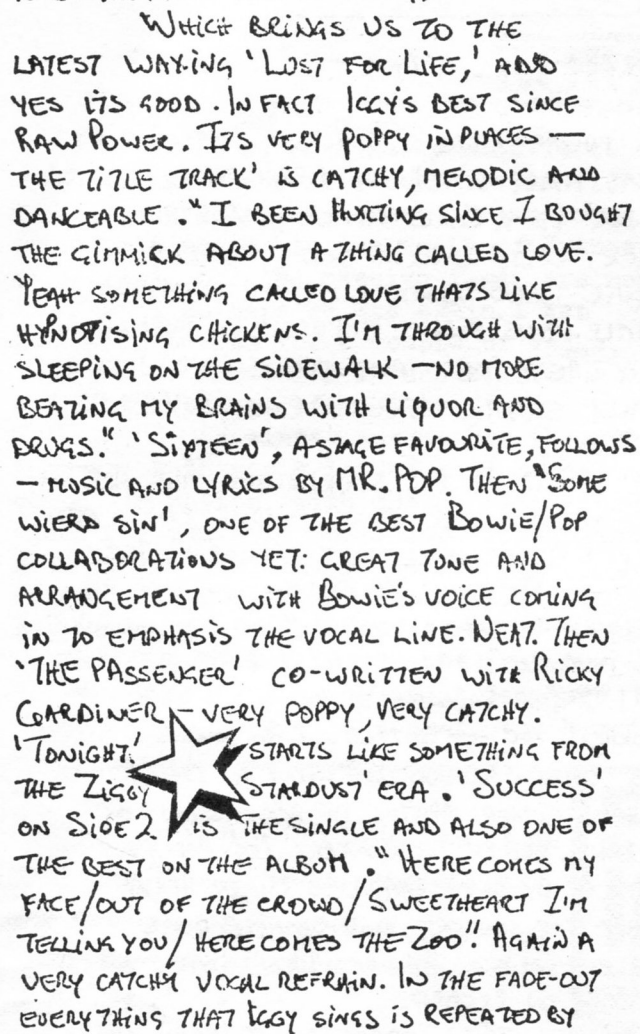 WHICH BRINGS US TO THE
LATEST WAXING 'LUST FOR LIFE,' AND
YES ITS GOOD. IN FACT IGGY'S BEST SINCE
RAW POWER. ITS VERY POPPY IN PLACES —
THE TITLE TRACK' IS CATCHY, MELODIC AND
DANCEABLE. "I BEEN HURTING SINCE I BOUGHT
THE GIMMICK ABOUT A THING CALLED LOVE.
YEAH SOMETHING CALLED LOVE THATS LIKE
HYPNOTISING CHICKENS. I'M THROUGH WITH
SLEEPING ON THE SIDEWALK — NO MORE
BEATING MY BRAINS WITH LIQUOR AND
DRUGS." 'SIXTEEN', A STAGE FAVOURITE, FOLLOWS
— MUSIC AND LYRICS BY MR. POP. THEN 'SOME
WIERD SIN', ONE OF THE BEST BOWIE/POP
COLLABORATIONS YET: GREAT TUNE AND
ARRANGEMENT WITH BOWIE'S VOICE COMING
IN TO EMPHASIS THE VOCAL LINE. NEAT. THEN
'THE PASSENGER' CO-WRITTEN WITH RICKY
GARDINER — VERY POPPY, VERY CATCHY.
'TONIGHT' STARTS LIKE SOMETHING FROM
THE ZIGGY STARDUST' ERA. 'SUCCESS'
ON SIDE 2 IS THE SINGLE AND ALSO ONE OF
THE BEST ON THE ALBUM. "HERE COMES MY
FACE/OUT OF THE CROWD/SWEETHEART I'M
TELLING YOU/HERE COMES THE ZOO". AGAIN A
VERY CATCHY VOCAL REFRAIN. IN THE FADE-OUT
EVERYTHING THAT IGGY SINGS IS REPEATED BY